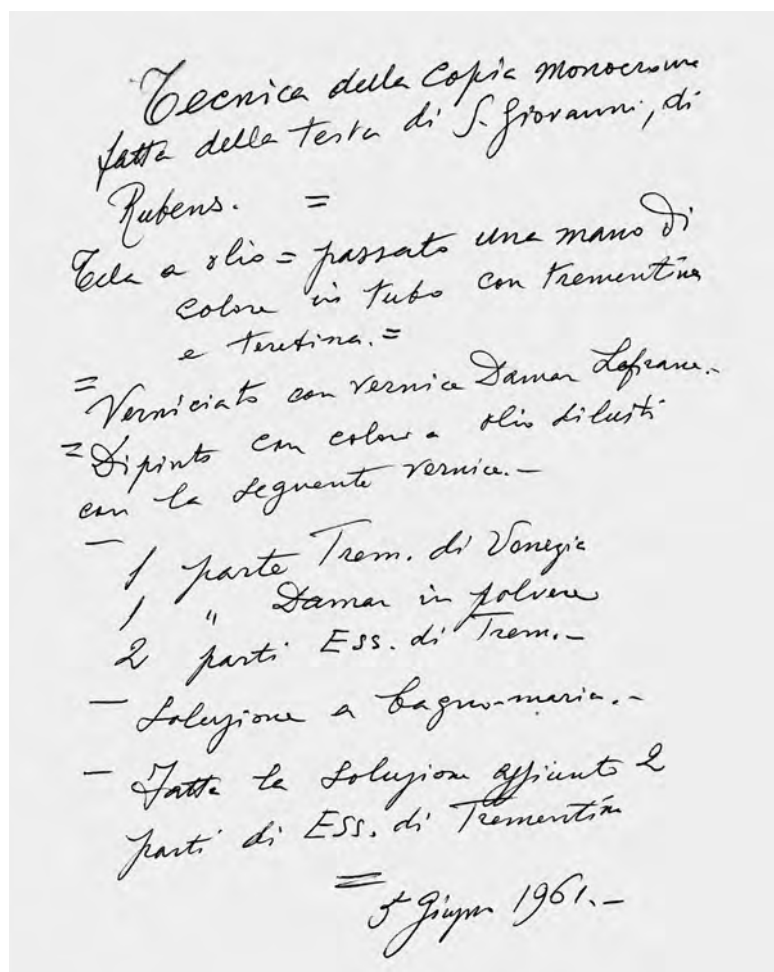 Tecnica della Copia monocroma
fatta della testa di S. Giovanni, di
Rubens. =
Tela a olio = passato una mano di
colore in tubo con trementina
e
=
Verniciato con vernice Damar Lefranc.-
= Dipinto con colori a olio diluiti
con la seguente vernice.-
— 1 parte Trem. di Venezia
1 " Damar in polvere
2 parti Ess. di Trem.-
— Soluzione a bagno-maria.-
— Fatta la soluzione aggiunto 2
parti di Ess. di Trementina
=
5 Giugno 1961.-